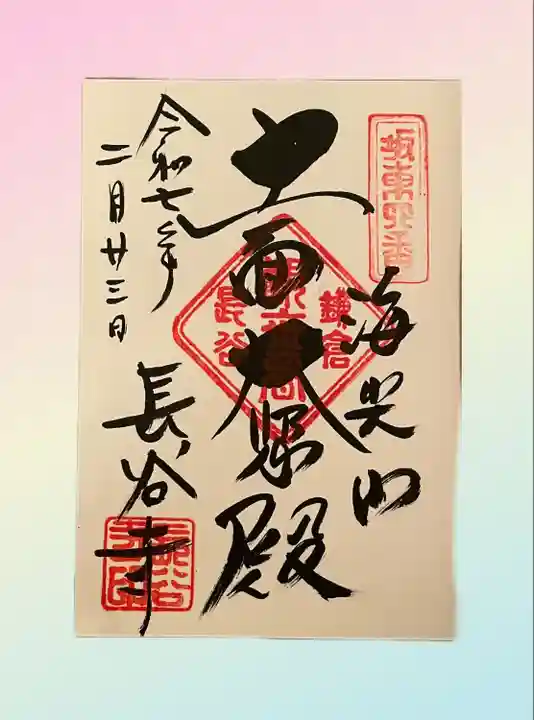 坂東四番
海光山
十一面大悲殿
鎌倉
長谷
令和七年
二月廿三日
長谷寺